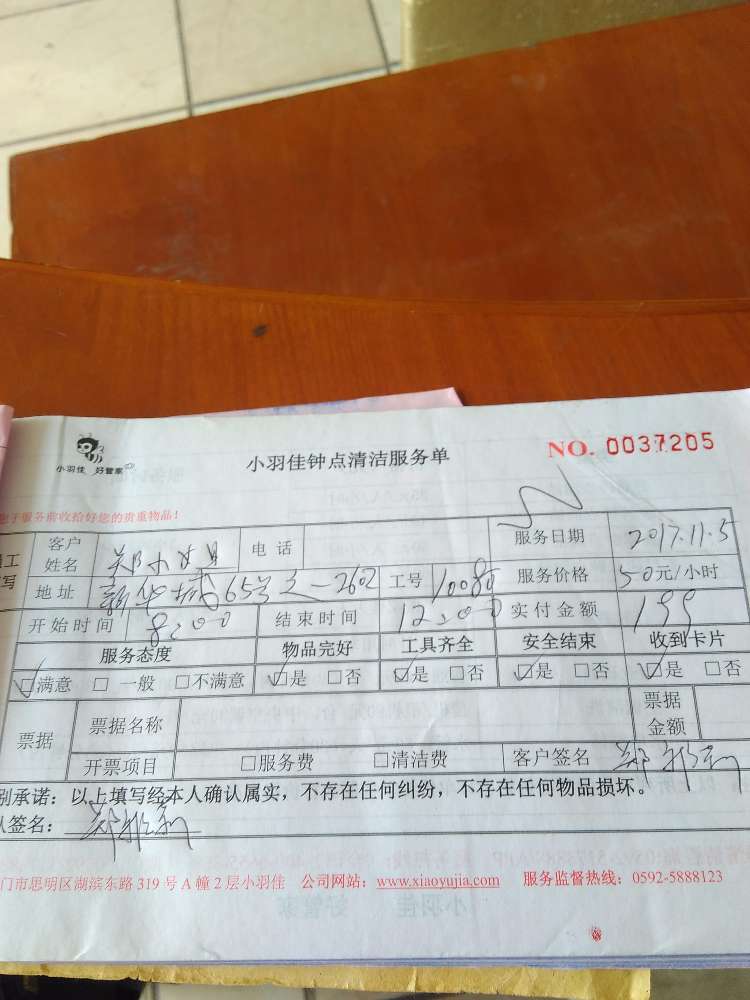 小羽佳 好管家
小羽佳钟点清洁服务单
NO. 0037205
于服务前收拾好您的贵重物品！
客户姓名 郑小姐 电话 服务日期 2017.11.5
地址 新华城65号之一2602 工号 10080 服务价格 50元/小时
开始时间 8:00 结束时间 12:00 实付金额 199
服务态度 物品完好 工具齐全 安全结束 收到卡片
☑满意 □一般 □不满意 ☑是 □否 ☑是 □否 ☑是 □否 ☑是 □否
票据 票据名称 票据金额
开票项目 □服务费 □清洁费 客户签名 郑
别承诺：以上填写经本人确认属实，不存在任何纠纷，不存在任何物品损坏。
人签名： 郑
门市思明区湖滨东路 319 号 A 幢 2 层小羽佳 公司网站：www.xiaoyujia.com 服务监督热线：0592-5888123